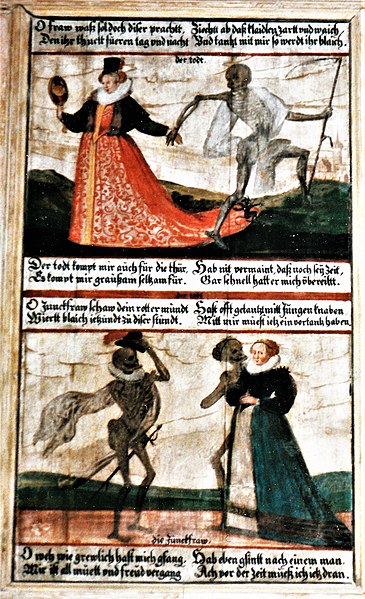 O fraw waß sol doch diser prachtt, Ziechtt ab daß klaidlen zartt und waich,
Den ihr thuett füeren tag und nacht Und tantzt mit mir so werdt ihr blaich.
der todt
Der todt kompt mir auch für die thür, Hab nit vermaint, daß noch seÿ Zeit,
Es kompt mir graüsam seltzam für. Gar schnell hatt er mich übereiltt.
der todt
O Junckfraw schaw dein rotter mündt Hast offt getantzt mitt Jüngen knaben
Wiertt blaich ietzündt zu diser stündt. Mitt mir müest ietz ein vortantz haben,
die Junckfraw
O weh wie grewlich hast mich gfang. Hab eben gsintt nach einem man.
Mir ist all müett und freüd vergang Ach vor der Zeit mueß ich ietz dran.